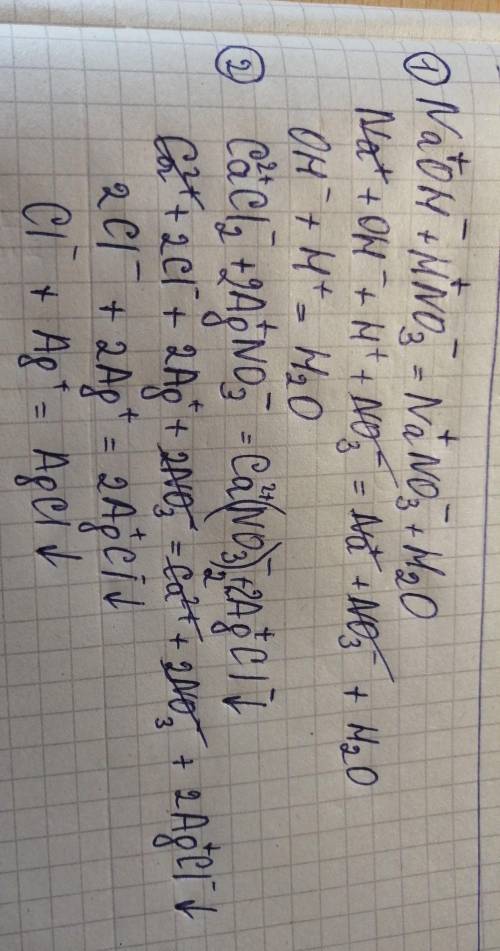 ① Na⁺OH⁻ + H⁺NO₃⁻ = Na⁺NO₃⁻ + H₂O
Na⁺ + OH⁻ + H⁺ + NO₃⁻ = Na⁺ + NO₃⁻ + H₂O
OH⁻ + H⁺ = H₂O
② Ca²⁺Cl₂⁻ + 2Ag⁺NO₃⁻ = Ca²⁺(NO₃)₂⁻ + 2Ag⁺Cl⁻↓
Ca²⁺ + 2Cl⁻ + 2Ag⁺ + 2NO₃⁻ = Ca²⁺ + 2NO₃⁻ + 2Ag⁺Cl⁻↓
2Cl⁻ + 2Ag⁺ = 2Ag⁺Cl⁻↓
Cl⁻ + Ag⁺ = AgCl↓